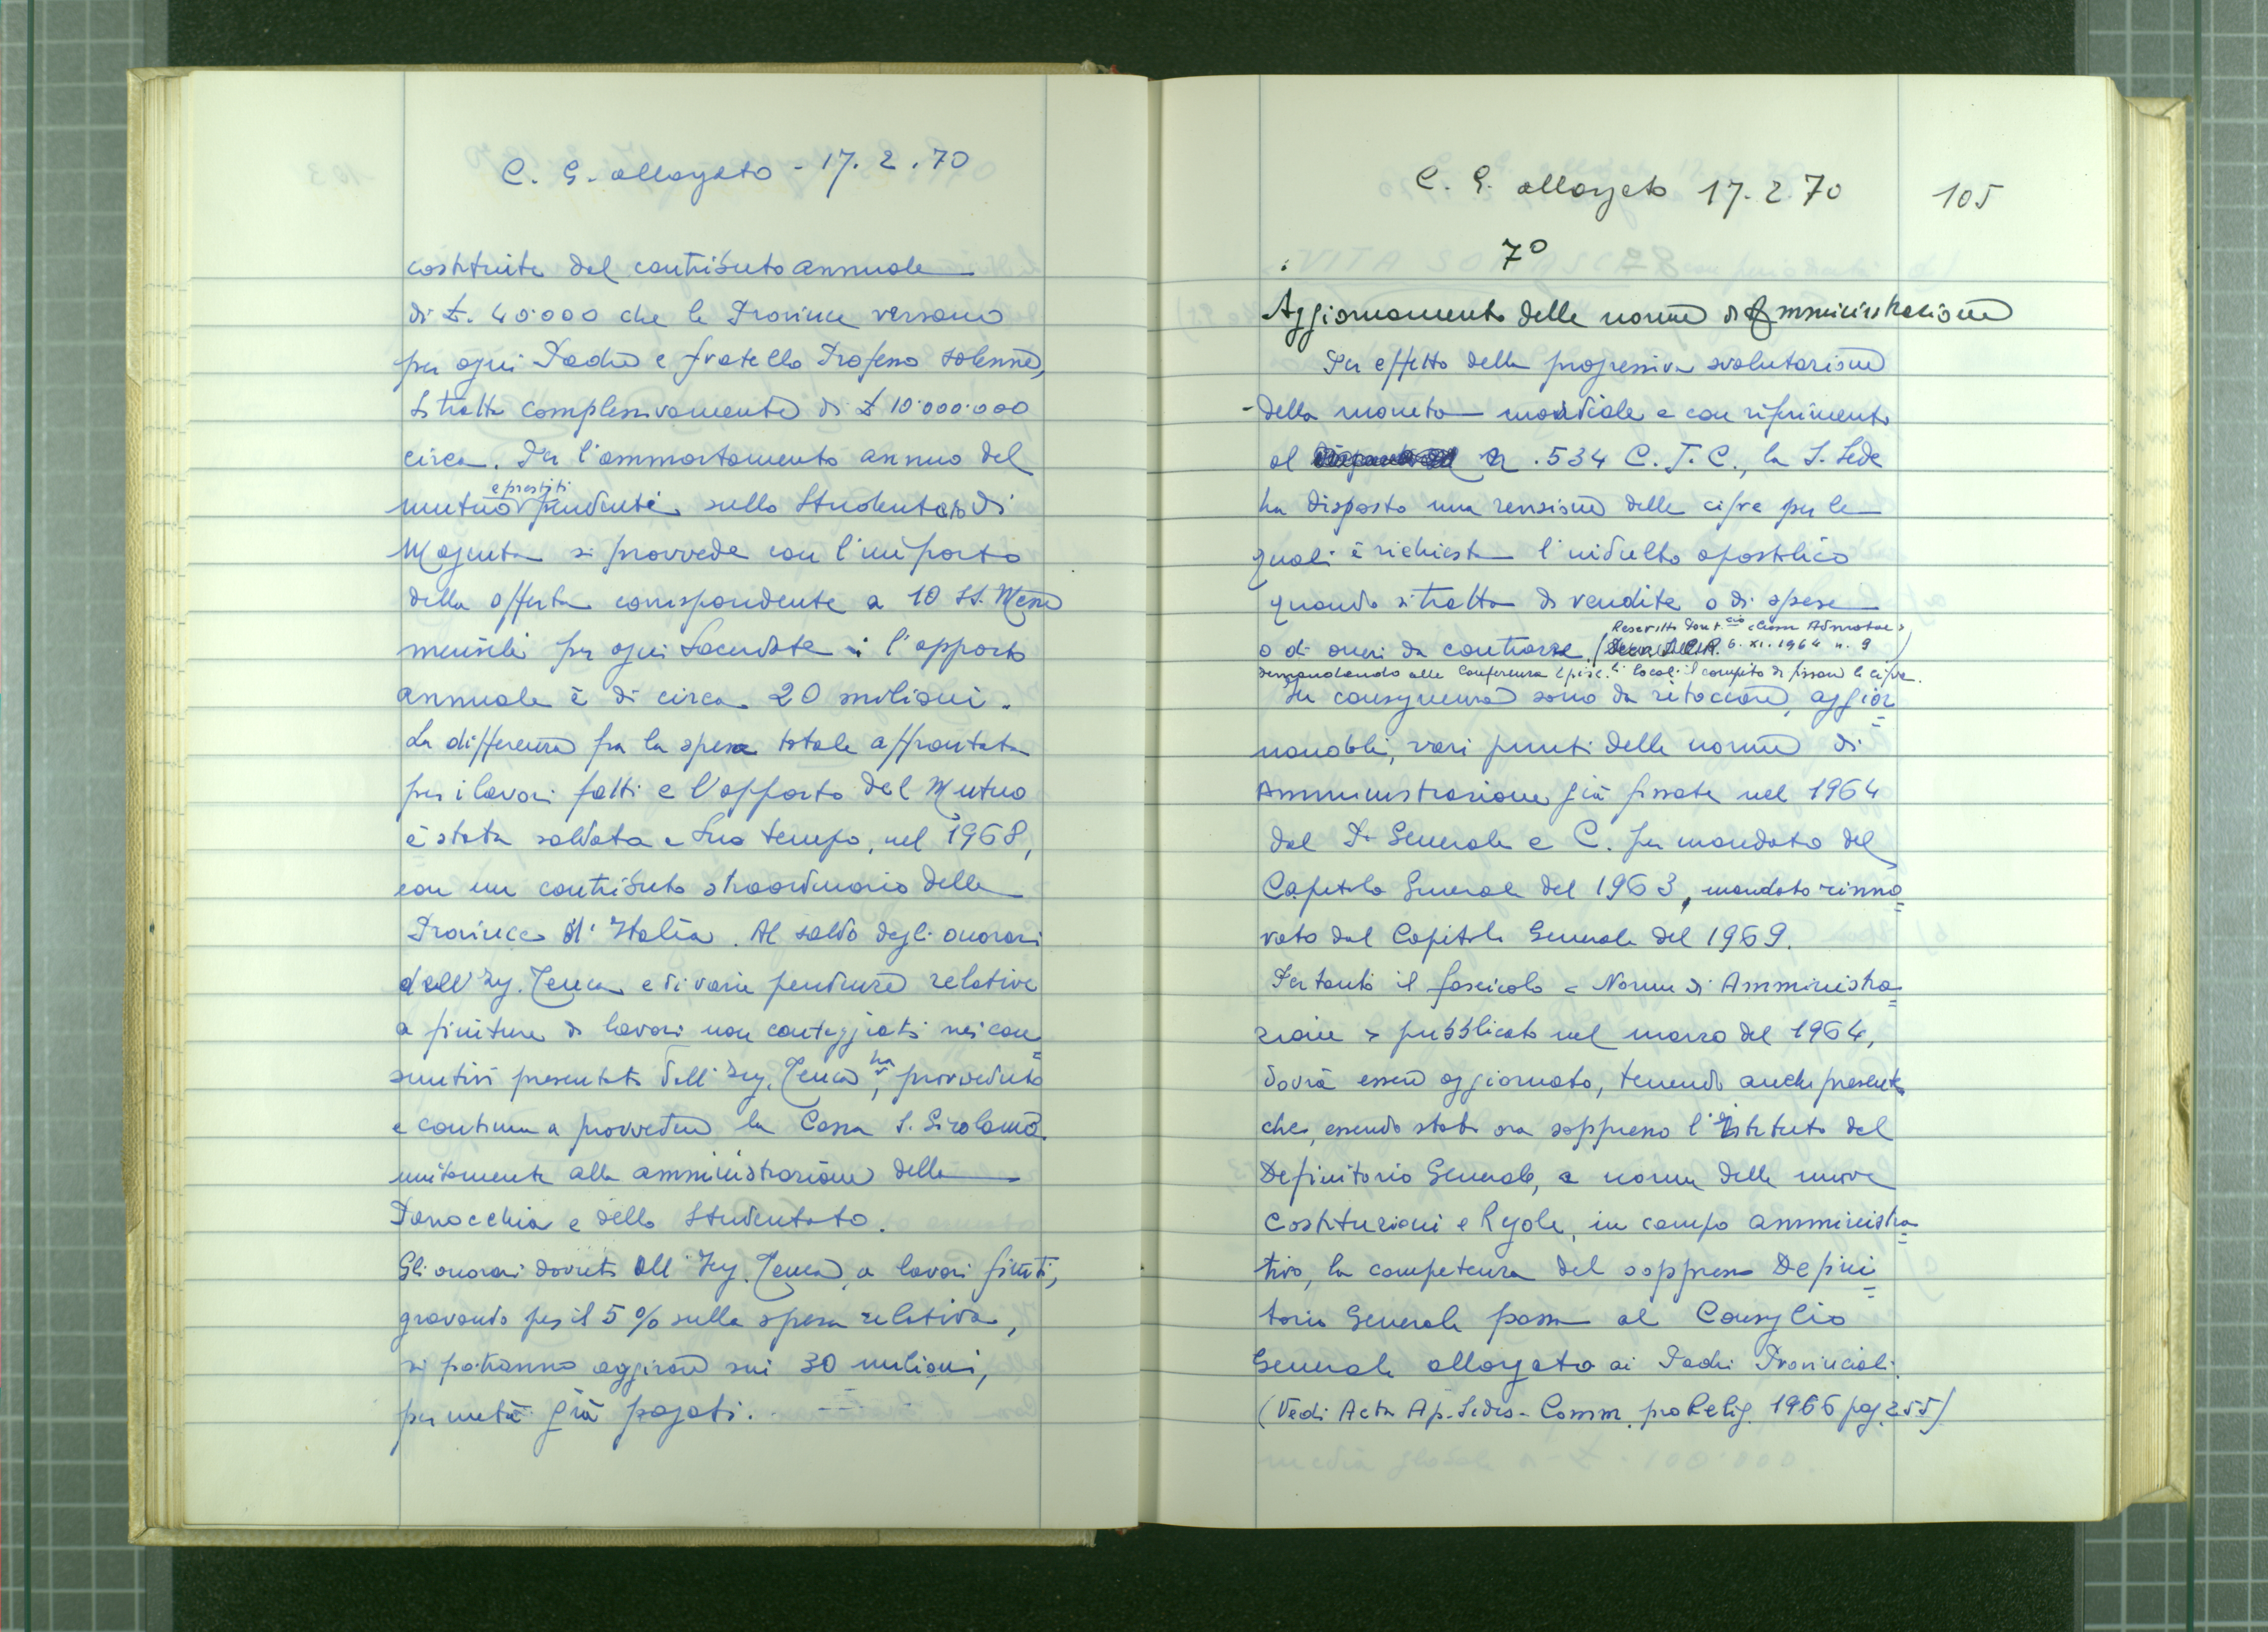 C. G. allargato - 17. 2. 70
costituita dal contributo annuale
di £. 40.000 che le Province versano
per ogni Padre e fratello Professo solenne,
Si tratta complessivamente di £ 10.000.000
circa. Per l'ammortamento annuo del
e prestiti
mutuo pendenti sullo Studentato di
Magenta si provvede con l'importo
della offerta corrispondente a 10 SS. Messe
mensili per ogni Sacerdote: l'apporto
annuale è di circa 20 milioni.
La differenza fra la spesa totale affrontata
per i lavori fatti e l'apporto del Mutuo
è stata saldata a suo tempo, nel 1968,
con un contributo straordinario delle
Province d'Italia. Al saldo degli onorari
dell'Ing. Tenca e di varie pendenze relative
a finiture di lavori non conteggiati nei con=
suntivi presentati dall'Ing. Tenca, ha provveduto
e continua a provvedere la Cassa S. Girolamo
unitamente alla amministrazione della
Parocchia e dello Studentato.
Gli onorari dovuti all'Ing. Tenca, a lavori finiti,
gravando per il 5% sulla spesa relativa,
si potranno aggirare sui 30 milioni,
per metà già pagati.
C. G. allargato 17. 2. 70
105
7º
Aggiornamento delle norme di Amministrazione
Per effetto della progressiva svalutazione
della moneta mondiale e con riferimento
al n. 534 C. J. C., la S. Sede
ha disposto una revisione delle cifre per le
quali è richiesto l'indulto apostolico
quando si tratta di vendite o di spese
Rescritto Pont.cio «Cum Admotae»
o di oneri da contrarre ( 6. XI. 1964 n. 9 )
demandando alle Conferenze Episc.li locali il compito di fissare le cifre.
In conseguenza sono da ritoccare, aggior=
nandoli, vari punti delle norme di
Amministrazione già fissate nel 1964
dal P. Generale e C. per mandato del
Capitolo Generale del 1963, mandato rinno=
vato dal Capitolo Generale del 1969.
Pertanto il fascicolo «Norme di Amministra=
zione» pubblicato nel marzo del 1964,
dovrà essere aggiornato, tenendo anche presente
che, essendo stato ora soppresso l'Istituto del
Definitorio Generale, a norma delle nuove
Costituzioni e Regole, in campo amministra=
tivo, la competenza del soppresso Defini=
torio Generale passa al Consiglio
Generale allargato ai Padri Provinciali.
(Vedi Acta Ap. Sedis - Comm. pro Relig. 1966 pag. 255)